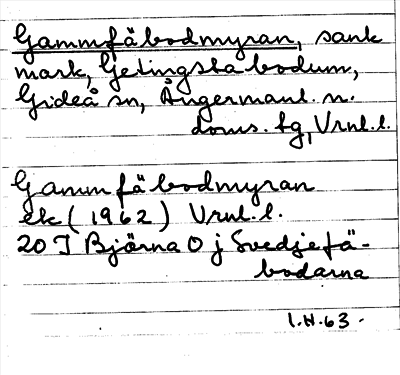 Gammfäbodmyran, sank
mark, Getingsta bodum,
Gideå sn, Ångermanl. n.
doms. tg, Vrnl.l.
Gammfäbodmyran
ek (1962) Vrnl.l.
20 J Björna O j Svedjefä-
bodarna
I.H.63.